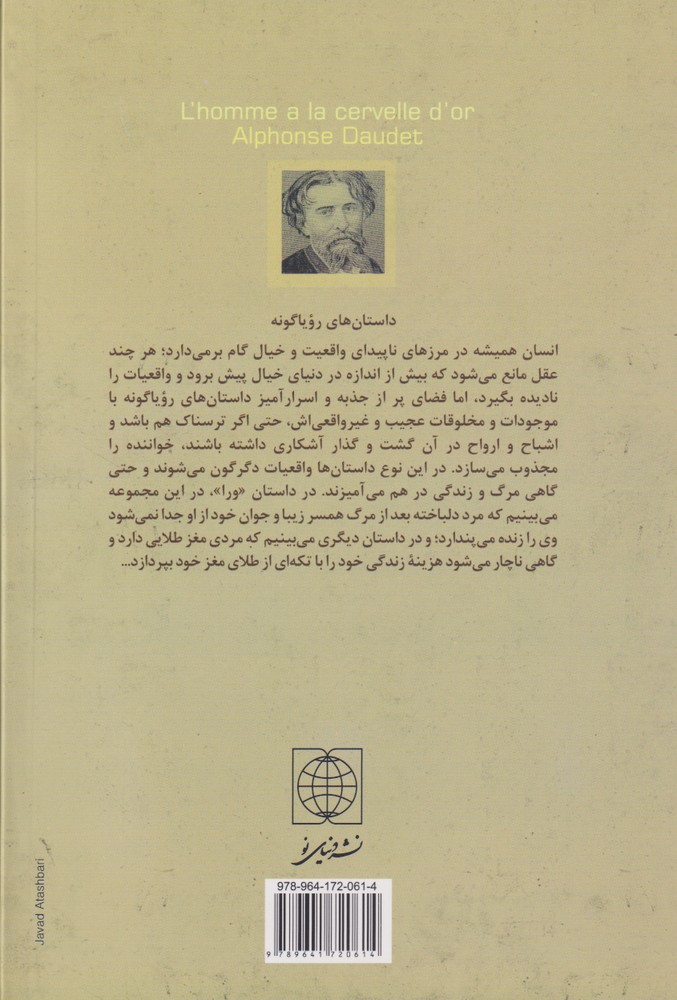 L'homme a la cervelle d'or
Alphonse Daudet
داستان‌های رؤیاگونه
انسان همیشه در مرزهای ناپیدای واقعیت و خیال گام برمی‌دارد؛ هر چند
عقل مانع می‌شود که بیش از اندازه در دنیای خیال پیش برود و واقعیات را
نادیده بگیرد، اما فضای پر از جذبه و اسرارآمیز داستان‌های رؤیاگونه با
موجودات و مخلوقات عجیب و غیرواقعی‌اش، حتی اگر ترسناک هم باشد و
اشباح و ارواح در آن گشت و گذار آشکاری داشته باشند، خواننده را
مجذوب می‌سازد. در این نوع داستان‌ها واقعیات دگرگون می‌شوند و حتی
گاهی مرگ و زندگی در هم می‌آمیزند. در داستان «ورا»، در این مجموعه
می‌بینیم که مرد دلباخته بعد از مرگ همسر زیبا و جوان خود از او جدا نمی‌شود
وی را زنده می‌پندارد؛ و در داستان دیگری می‌بینیم که مردی مغز طلایی دارد و
گاهی ناچار می‌شود هزینهٔ زندگی خود را با تکه‌ای از طلای مغز خود بپردازد...
نشر دنیای نو
978-964-172-061-4
9 789641 720614
Javad Atashbari